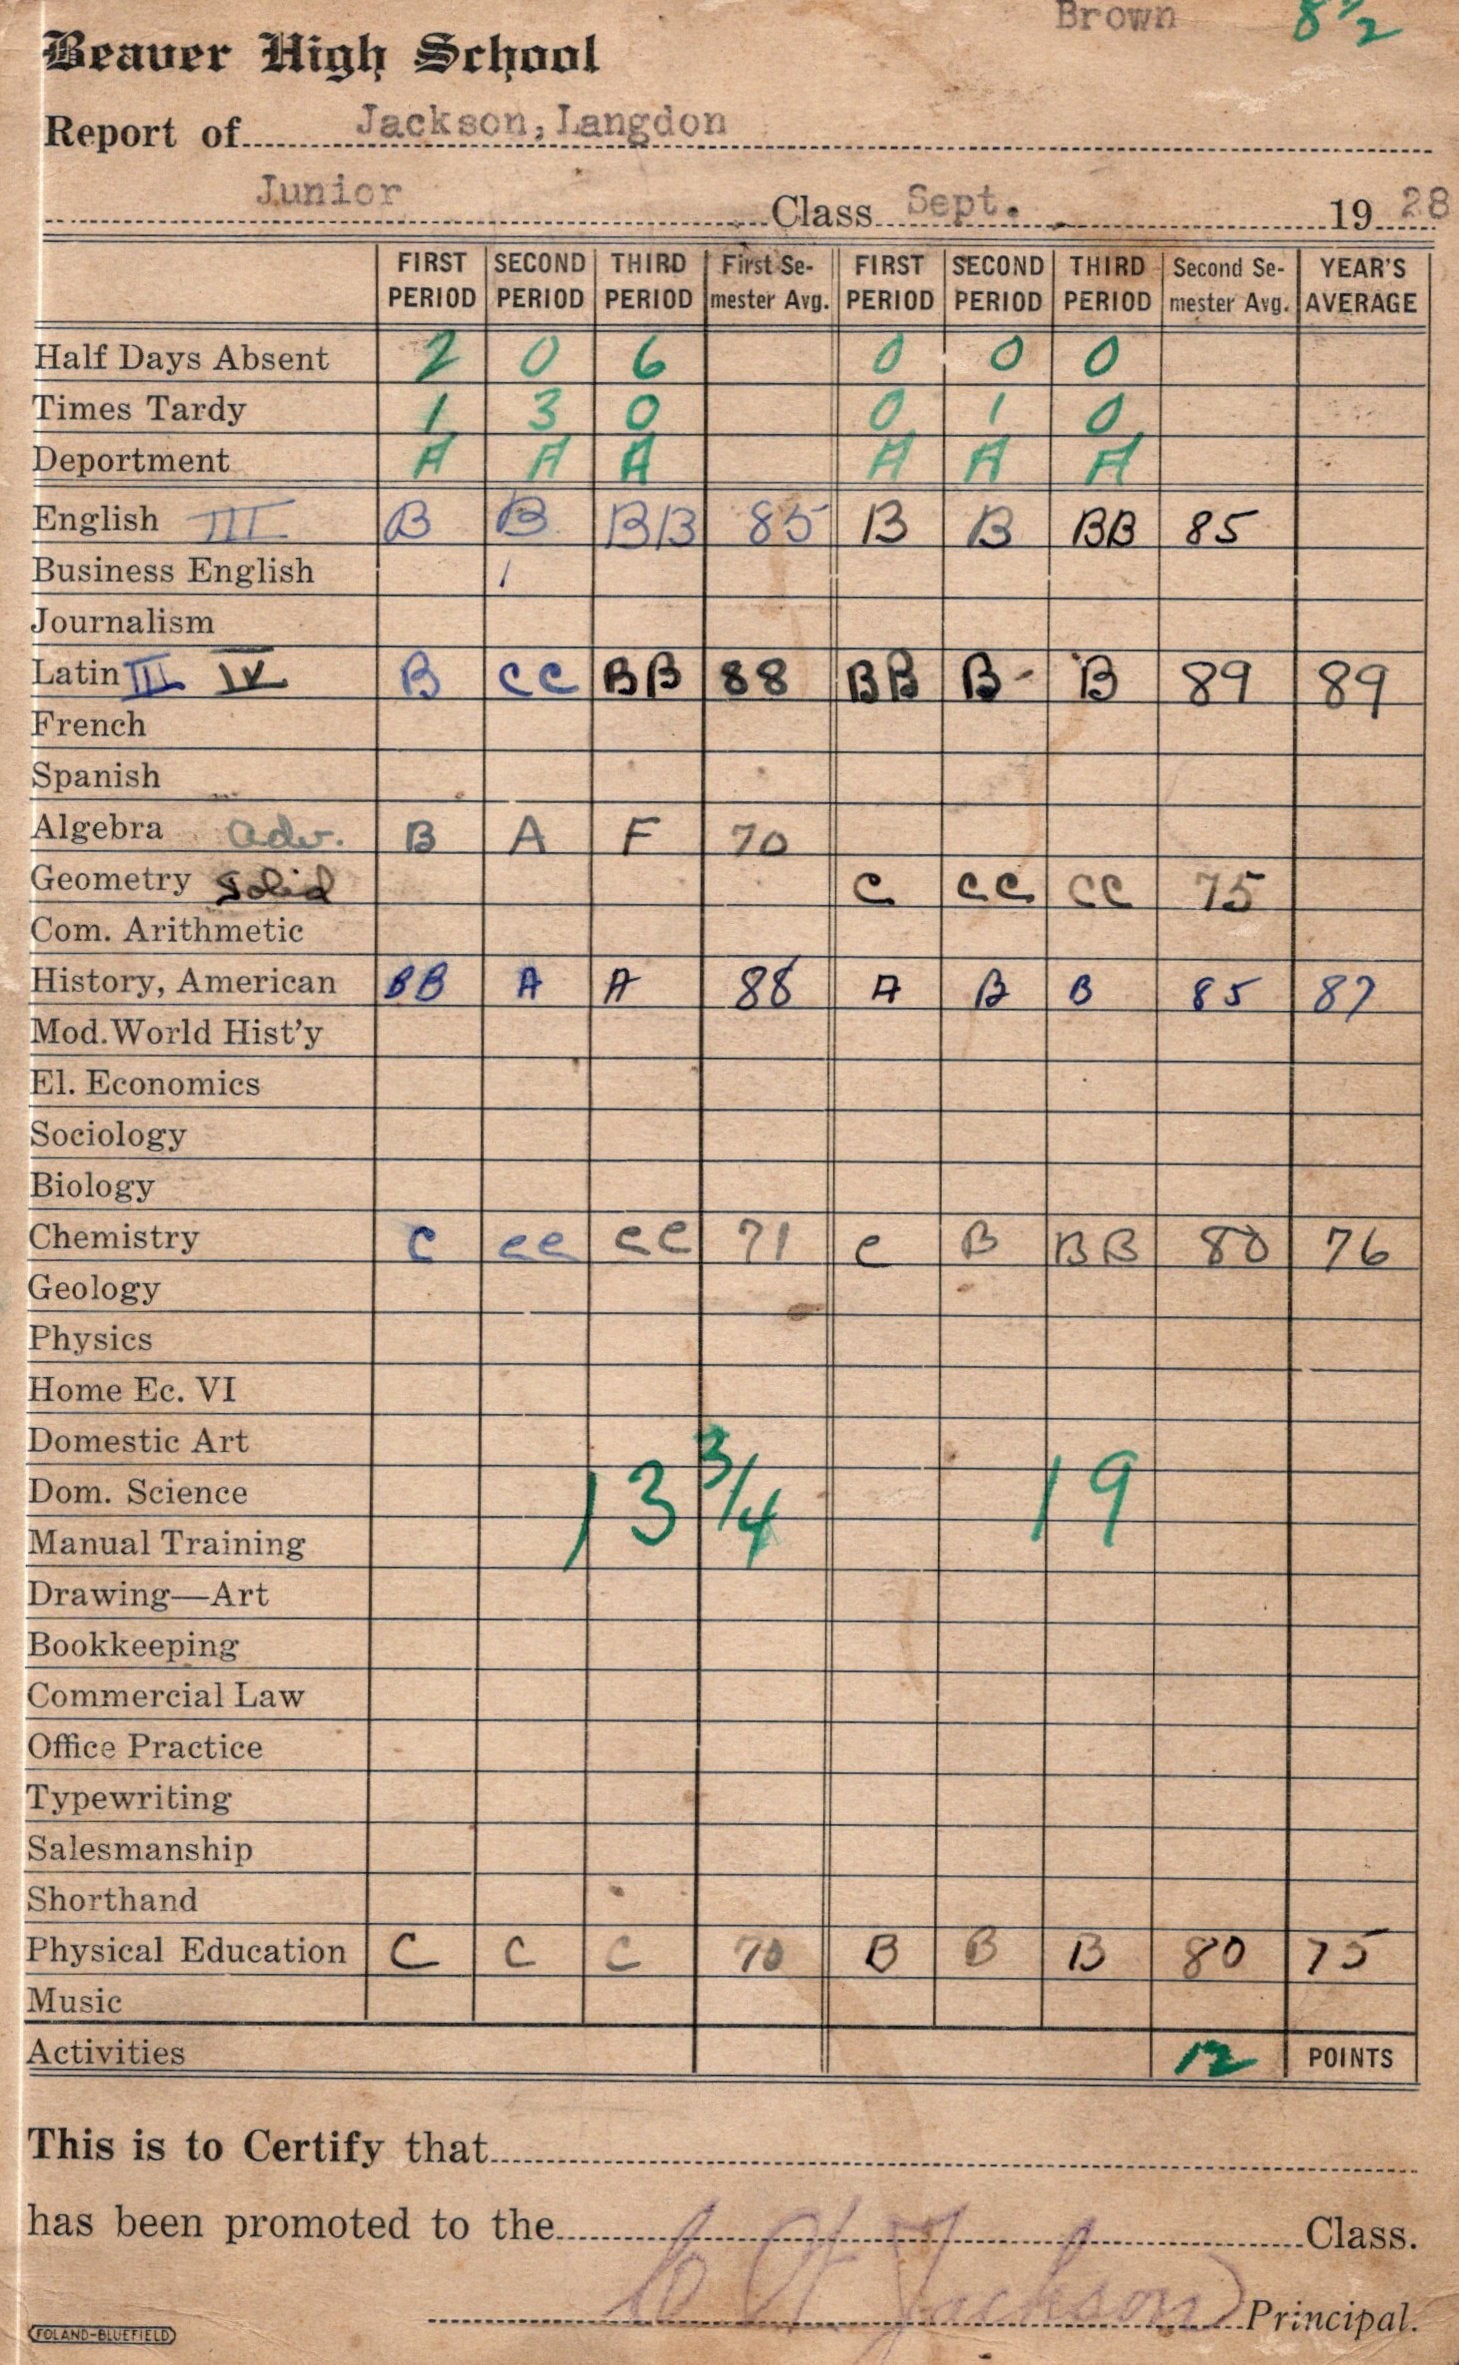 Brown 8 1/2
Beaver High School
Report of Jackson, Langdon
Junior Class Sept. 19 28
FIRST PERIOD SECOND PERIOD THIRD PERIOD First Se-mester Avg. FIRST PERIOD SECOND PERIOD THIRD PERIOD Second Se-mester Avg. YEAR'S AVERAGE
Half Days Absent 2 0 6 0 0 0
Times Tardy 1 3 0 0 1 0
Deportment A A A A A A
English III B B BB 85 B B BB 85
Business English
Journalism
Latin III IV B CC BB 88 BB B- B 89 89
French
Spanish
Algebra adv. B A F 70
Geometry Solid C CC CC 75
Com. Arithmetic
History, American BB A A 88 A B B 85 87
Mod. World Hist'y
El. Economics
Sociology
Biology
Chemistry C CC CC 71 C B BB 80 76
Geology
Physics
Home Ec. VI
Domestic Art
Dom. Science 13 3/4 19
Manual Training
Drawing—Art
Bookkeeping
Commercial Law
Office Practice
Typewriting
Salesmanship
Shorthand
Physical Education C C C 70 B B B 80 75
Music
Activities 12 POINTS
This is to Certify that
has been promoted to the Class.
Jackson Principal.
FOLAND-BLUEFIELD